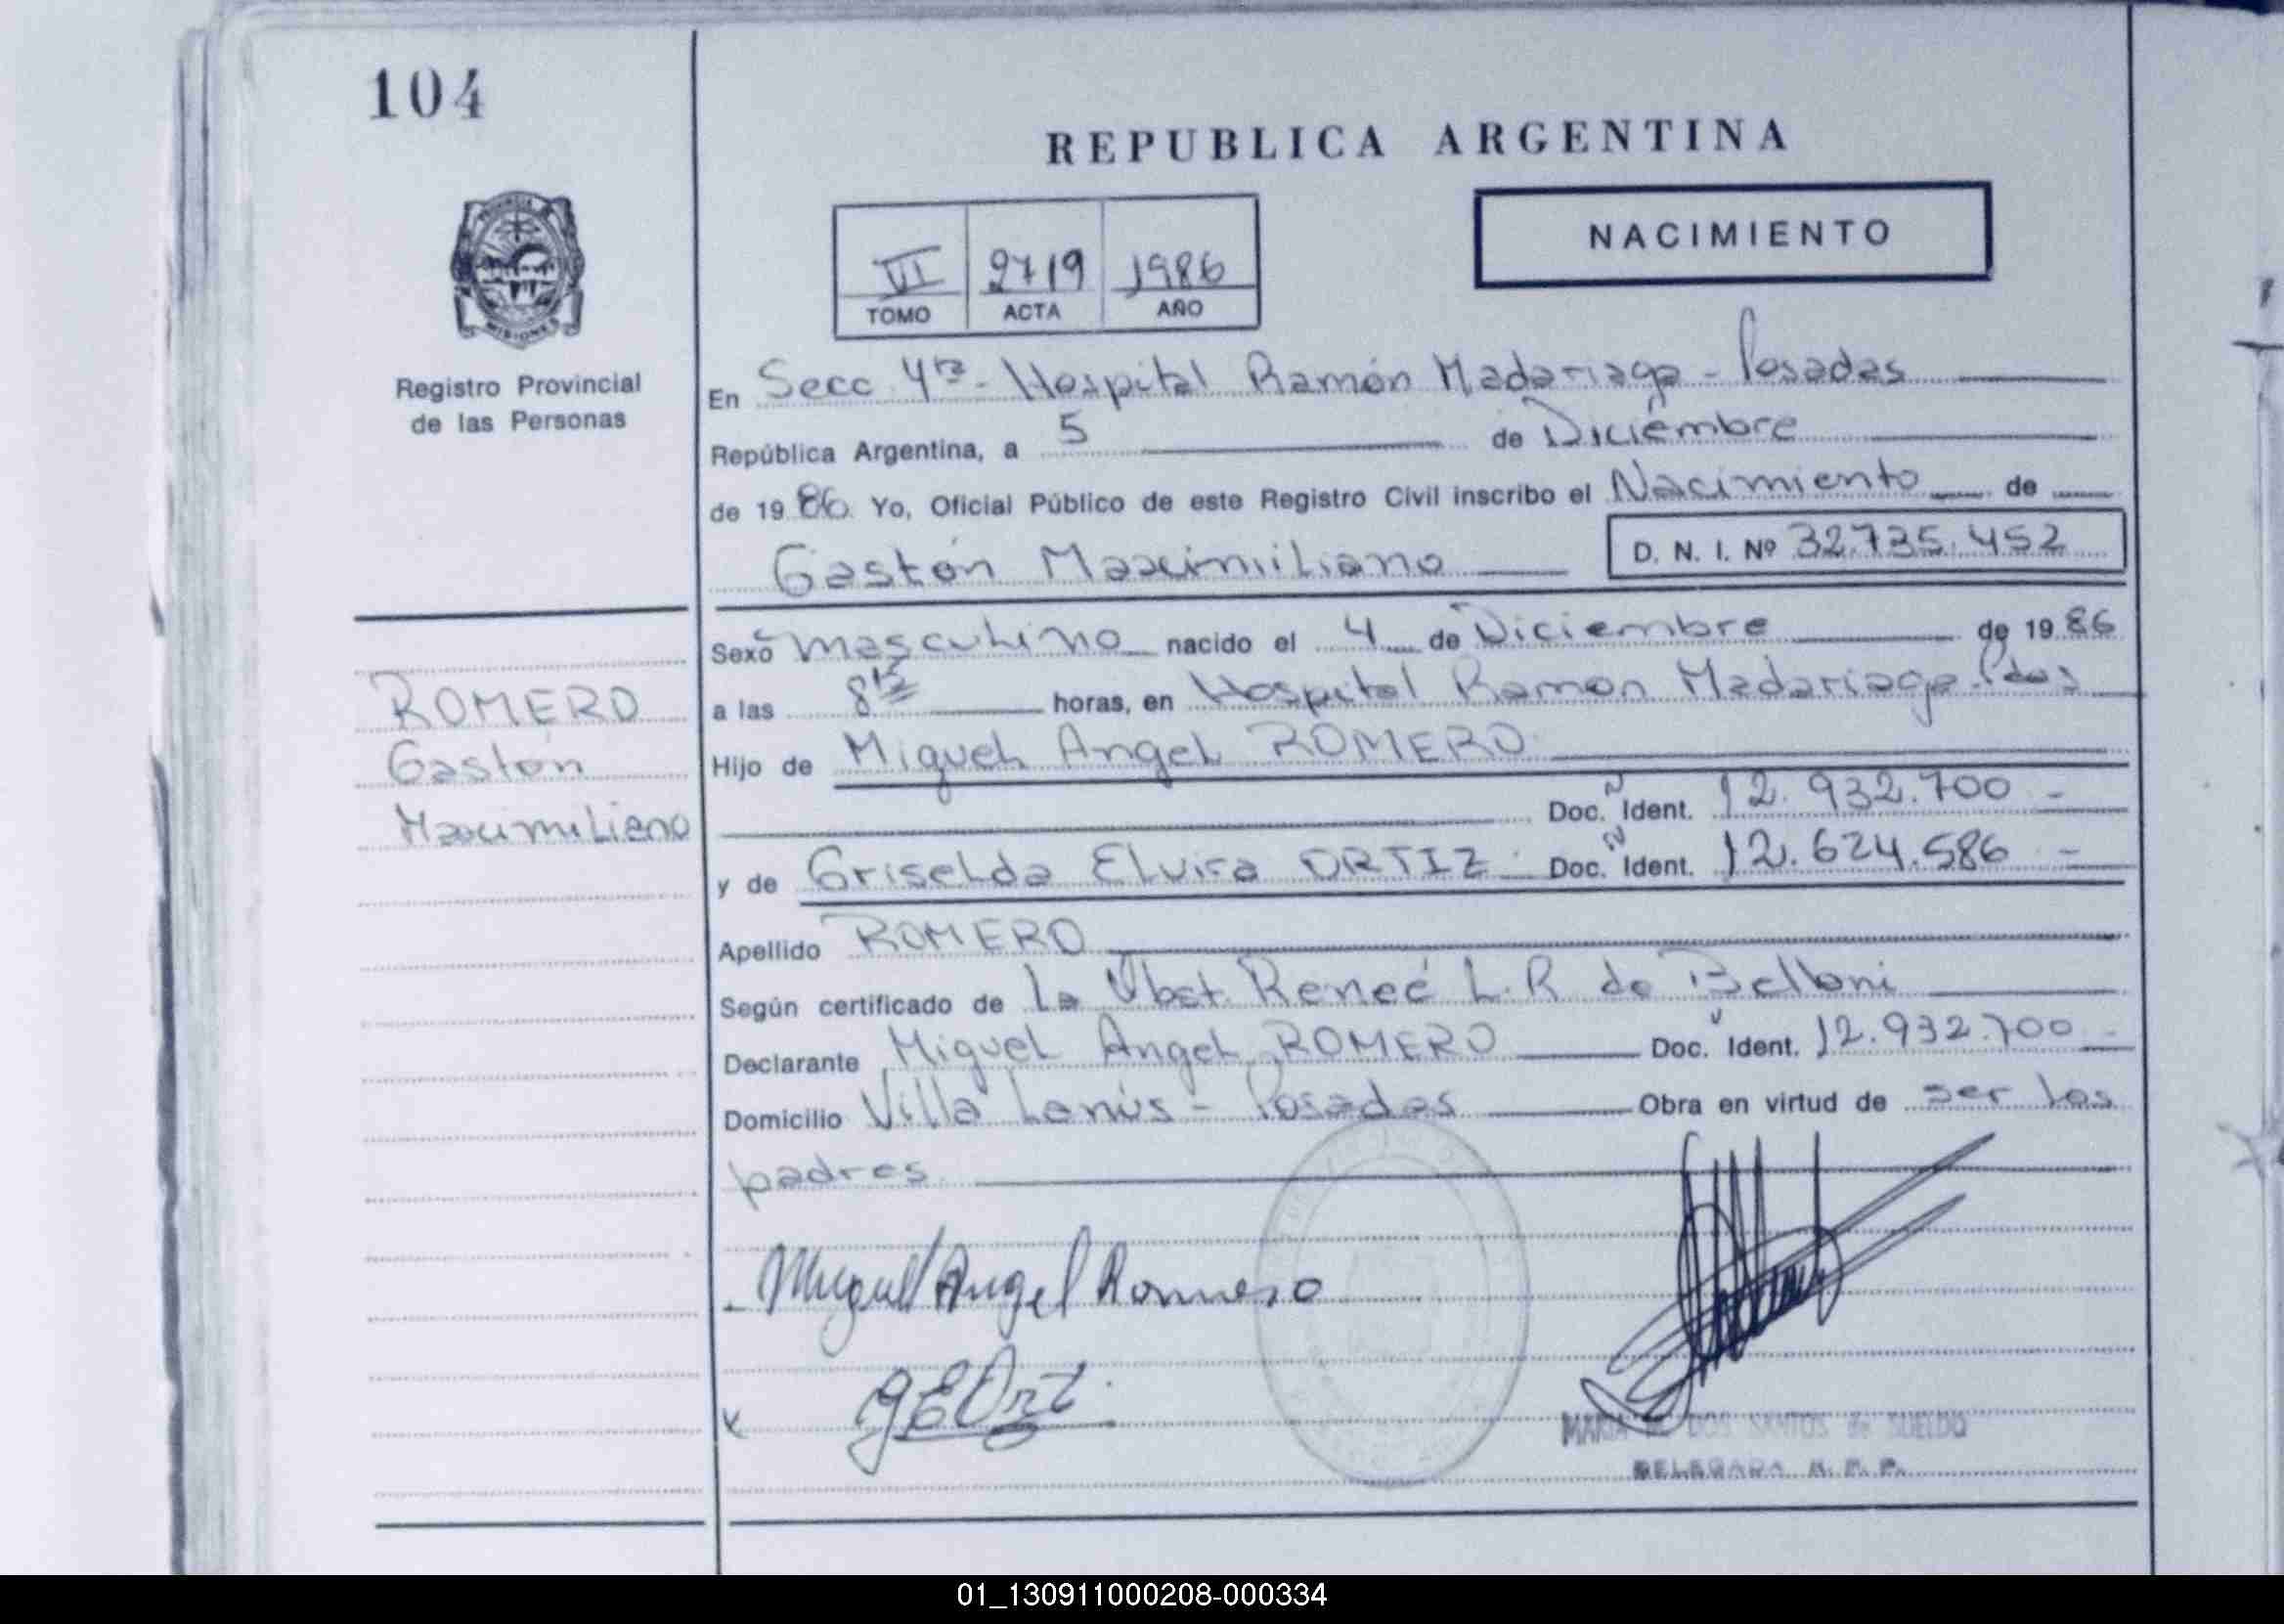 104
REPUBLICA ARGENTINA
PROVINCIA DE
MISIONES
Registro Provincial
de las Personas
NACIMIENTO
VII 2719 1986
TOMO ACTA AÑO
En Secc 4ta - Hospital Ramón Madariaga - Posadas
República Argentina, a 5 de Diciembre
de 1986 Yo, Oficial Público de este Registro Civil inscribo el Nacimiento de
Gastón Maximiliano D. N. I. Nº 32.735.452
Sexo masculino nacido el 4 de Diciembre de 1986
a las 8 horas, en Hospital Ramon Madariaga - Pdas
Hijo de Miguel Angel ROMERO
Doc. N Ident. 12.932.700 -
y de Griselda Elvira ORTIZ Doc. N Ident. 12.624.586 -
Apellido ROMERO
Según certificado de La Obst. Reneé L.R de Belloni
Declarante Miguel Angel ROMERO Doc. Ident. 12.932.700 -
Domicilio Villa Lanús - Posadas Obra en virtud de ser los
padres
ROMERO
Gastón
Maximiliano
Miguel Angel Romero
x GEOrt
MARIA DOS SANTOS de SUELDO
DELEGADA R. P. P.
01_130911000208-000334